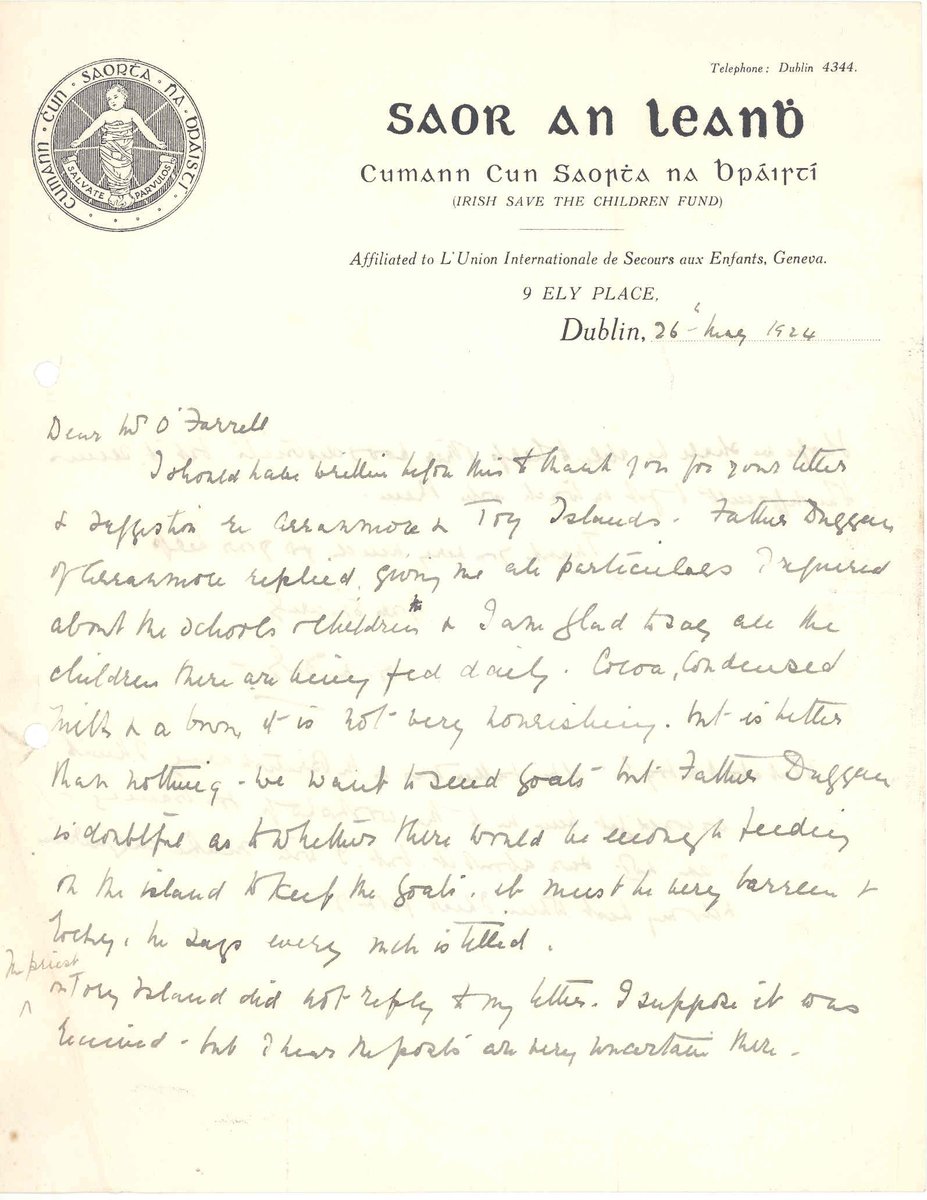 Telephone: Dublin 4344.
CUMANN ĊUN SAORṪA NA BPÁISTÍ
SALVATE PARVULOS
SAOR AN LEANḂ
Cumann Cun Saorṫa na bPáistí
(IRISH SAVE THE CHILDREN FUND)
Affiliated to L'Union Internationale de Secours aux Enfants, Geneva.
9 ELY PLACE,
Dublin, 26th May 1924
Dear Mr O'Farrell
I should have written before this to thank you for your letter
& suggestion re Arranmore & Tory Islands. Father Duggan
of Arranmore replied, giving me all particulars I required
about the schools & children & I am glad to say all the
children there are being fed daily. Cocoa, Condensed
Milk & a bun, it is not very nourishing. but is better
than nothing - we want to send goats but Father Duggan
is doubtful as to whether there would be enough feeding
on the island to keep the goats. it must be very barren &
rocky, he says every inch is tilled.
The priest
on Tory Island did not reply to my letter. I suppose it was
received - but I hear the posts are very uncertain there.